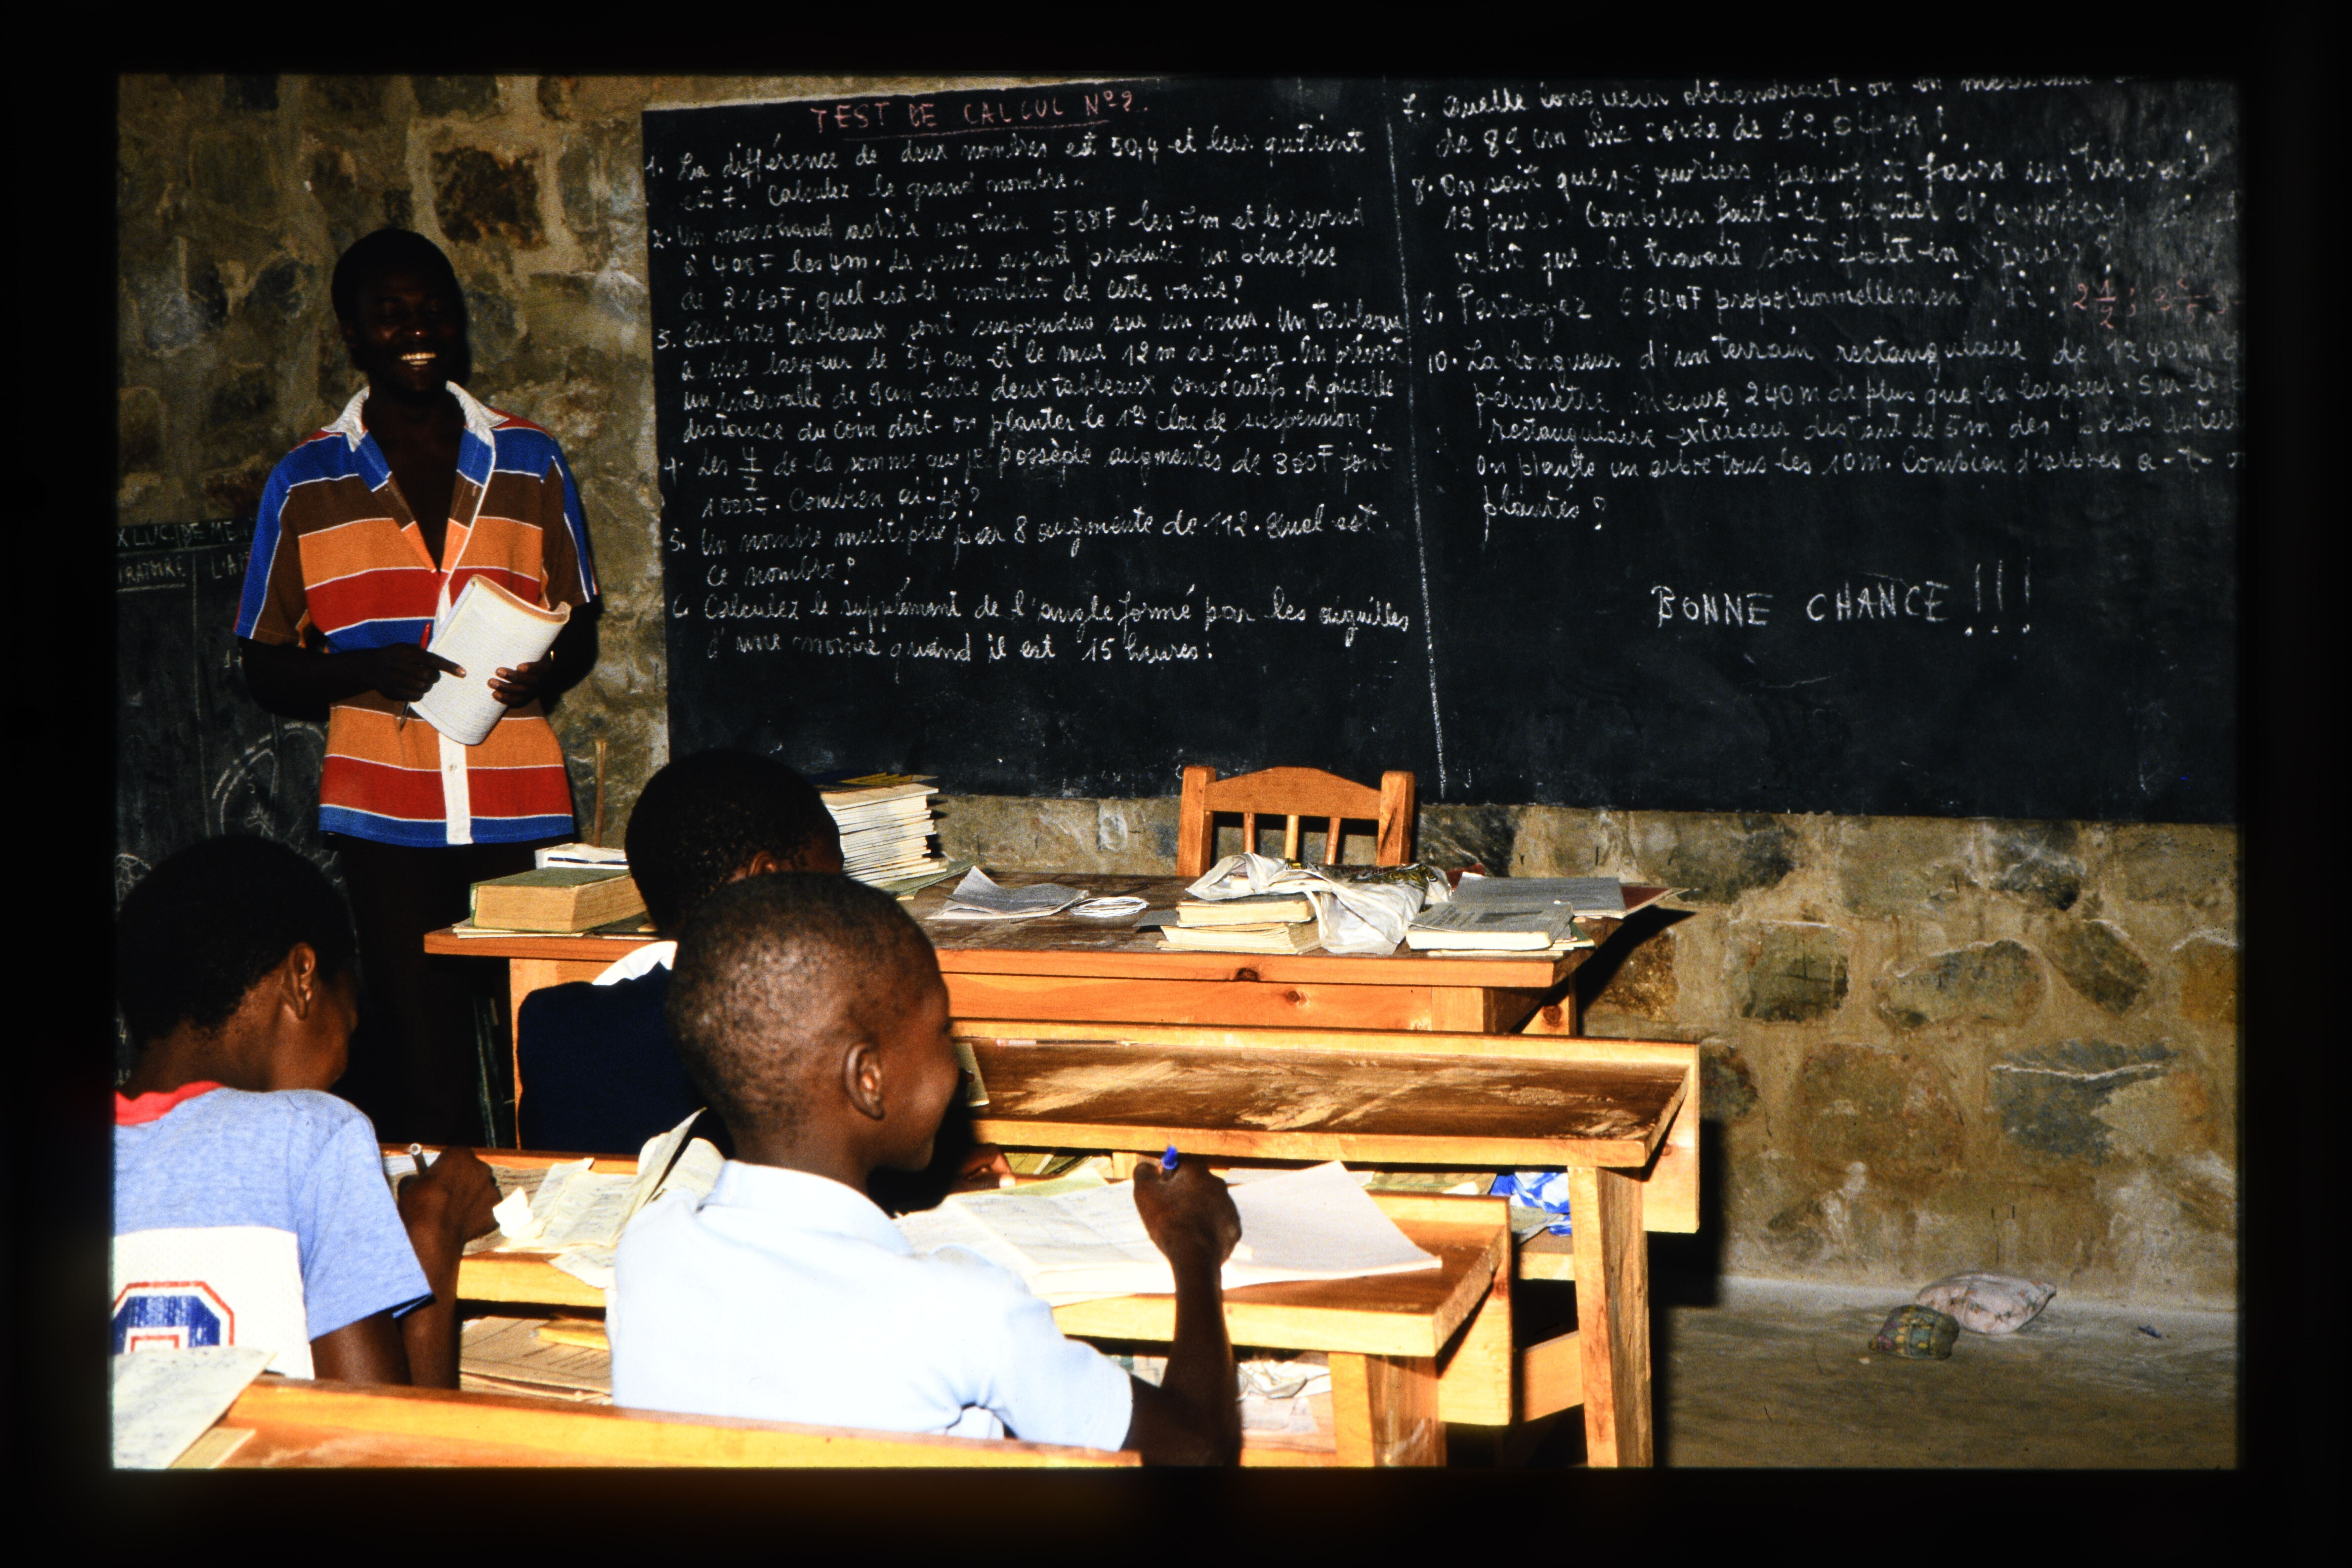 TEST DE CALCUL Nº2.
1. La différence de deux nombres est 50,4 et leur quotient
est 7. Calculez le grand nombre.
2. Un marchand achète un tissu 588F les 7m et le revend
à 408F les 4m. La vente ayant produit un bénéfice
de 2160F, quel est le montant de cette vente?
3. Quinze tableaux sont suspendus sur un mur. Un tableau
a une largeur de 54 cm et le mur 12m de long. On prévoit
un intervalle de 9cm entre deux tableaux consécutifs. A quelle
distance du coin doit-on planter le 1er clou de suspension?
4. Les 4/7 de la somme que je possède augmentés de 360F font
1000F. Combien ai-je?
5. Un nombre multiplié par 8 augmente de 112. Quel est
ce nombre?
6. Calculez le supplément de l'angle formé par les aiguilles
d'une montre quand il est 15 heures.
7. Quelle longueur obtiendrait-on en mesurant
de 82 cm une corde de 32,04m?
8. On sait que 15 ouvriers peuvent faire un travail
12 jours. Combien faut-il d'ouvriers
veut que le travail soit fait en jours?
9. Partagez 6340F proportionnellement à: 2 1/2; 3
10. La longueur d'un terrain rectangulaire de 1240m
périmètre mesure 240m de plus que la largeur. Sur le
rectangulaire extérieur distant de 5m des bords du terr
on plante un arbre tous les 10m. Combien d'arbres a-t-
plantés?
BONNE CHANCE!!!
X LUC. DE ME
IRATOIRE L'A